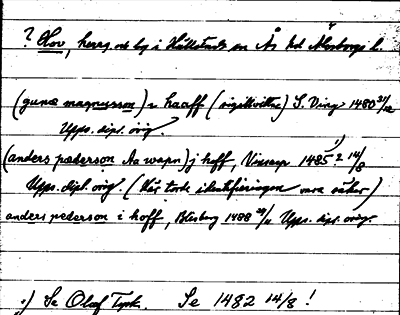 ? Hov, herrg. och by i Hällstads sn Ås hd Älvsborgs l.
(gunæ magnusson) i haaff (sigillvittne) S. Ving 1480 31/12
Upps. dipl. orig.
(anders pæderson Aa wapn) j hoff, 1485 2) 14/8
Upps. dipl. orig. (Här torde identifieringen vara säker)
anders pederson i hoff, 1488 29/11 Upps. dipl. orig.
1) Se Olof Se 1482 14/8 !